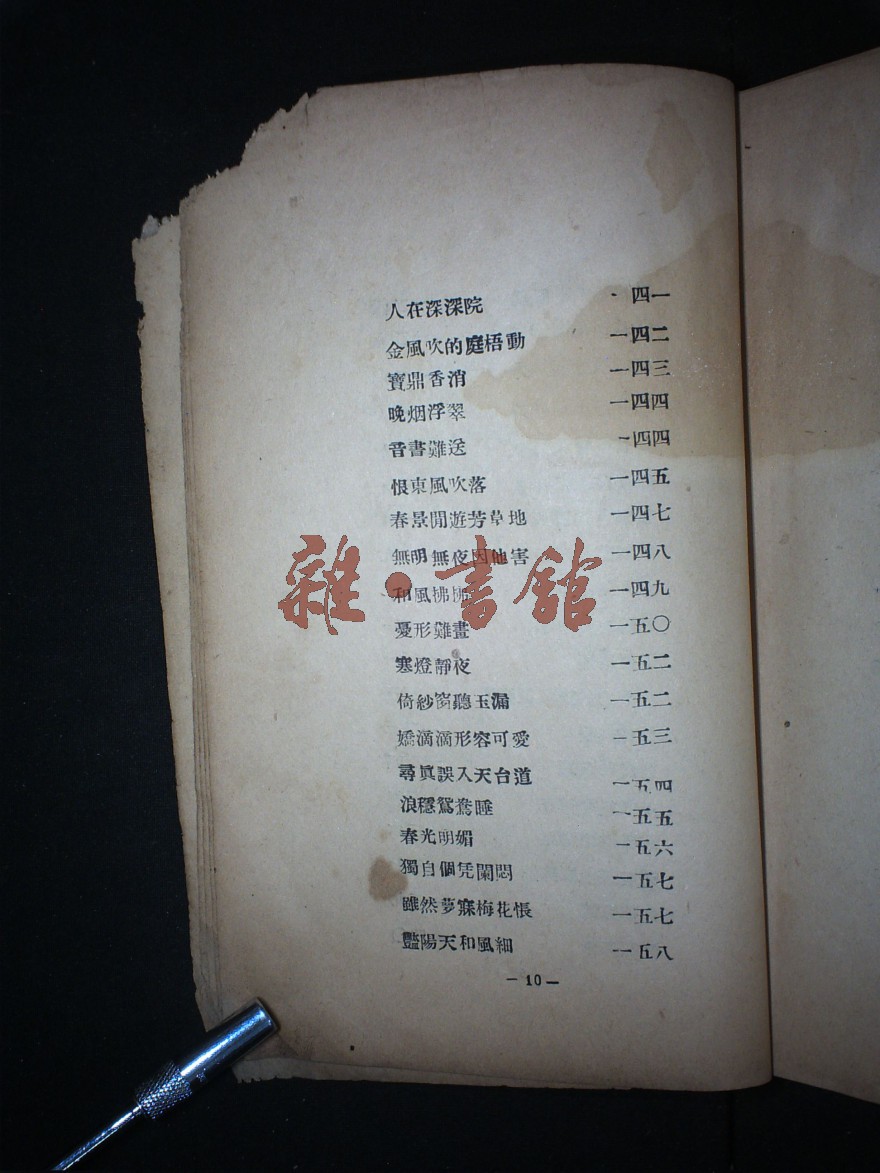 人在深深院 一四一
金風吹的庭梧動 一四二
寶鼎香消 一四三
晚烟浮翠 一四四
音書難送 一四四
恨東風吹落 一四五
春景閒遊芳草地 一四七
無明無夜因他害 一四八
和風拂拂 一四九
憂形難畫 一五〇
寒燈靜夜 一五二
倚紗窗聽玉漏 一五二
嬌滴滴形容可愛 一五三
尋眞誤入天台道 一五四
浪穩鴛鴦睡 一五五
春光明媚 一五六
獨自個凭闌悶 一五七
雖然夢寐梅花悵 一五七
豔陽天和風細 一五八
— 10 —
雜·書館